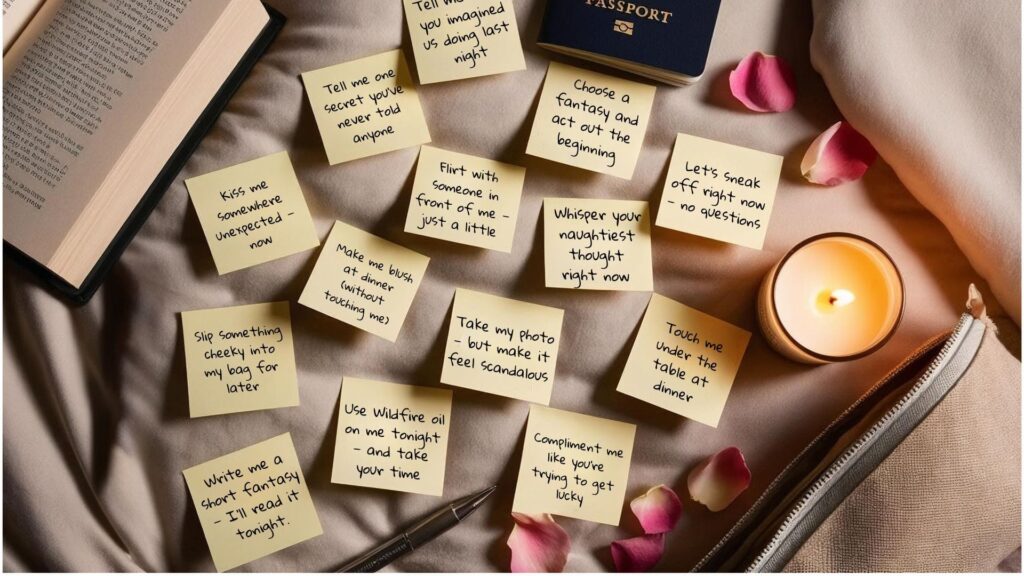 Tell me
you imagined
us doing last
night
PASSPORT
Tell me one
secret you've
never told
anyone
Choose a
fantasy and
act out the
beginning
Kiss me
somewhere
unexpected -
now
Flirt with
someone in
front of me -
just a little
Let's sneak
off right now
- no questions
Whisper your
naughtiest
thought
right now
Make me blush
at dinner
(without
touching me)
Slip something
cheeky into
my bag for
later
Take my photo
- but make it
feel scandalous
Touch me
under the
table at
dinner
Use Wildfire oil
on me tonight
- and take
your time
Compliment me
like you're
trying to get
lucky
Write me a
short fantasy
- I'll read it
tonight.